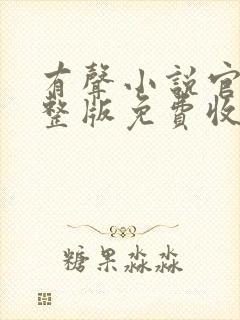 有聲小說官
整版免費收
糖果淼淼